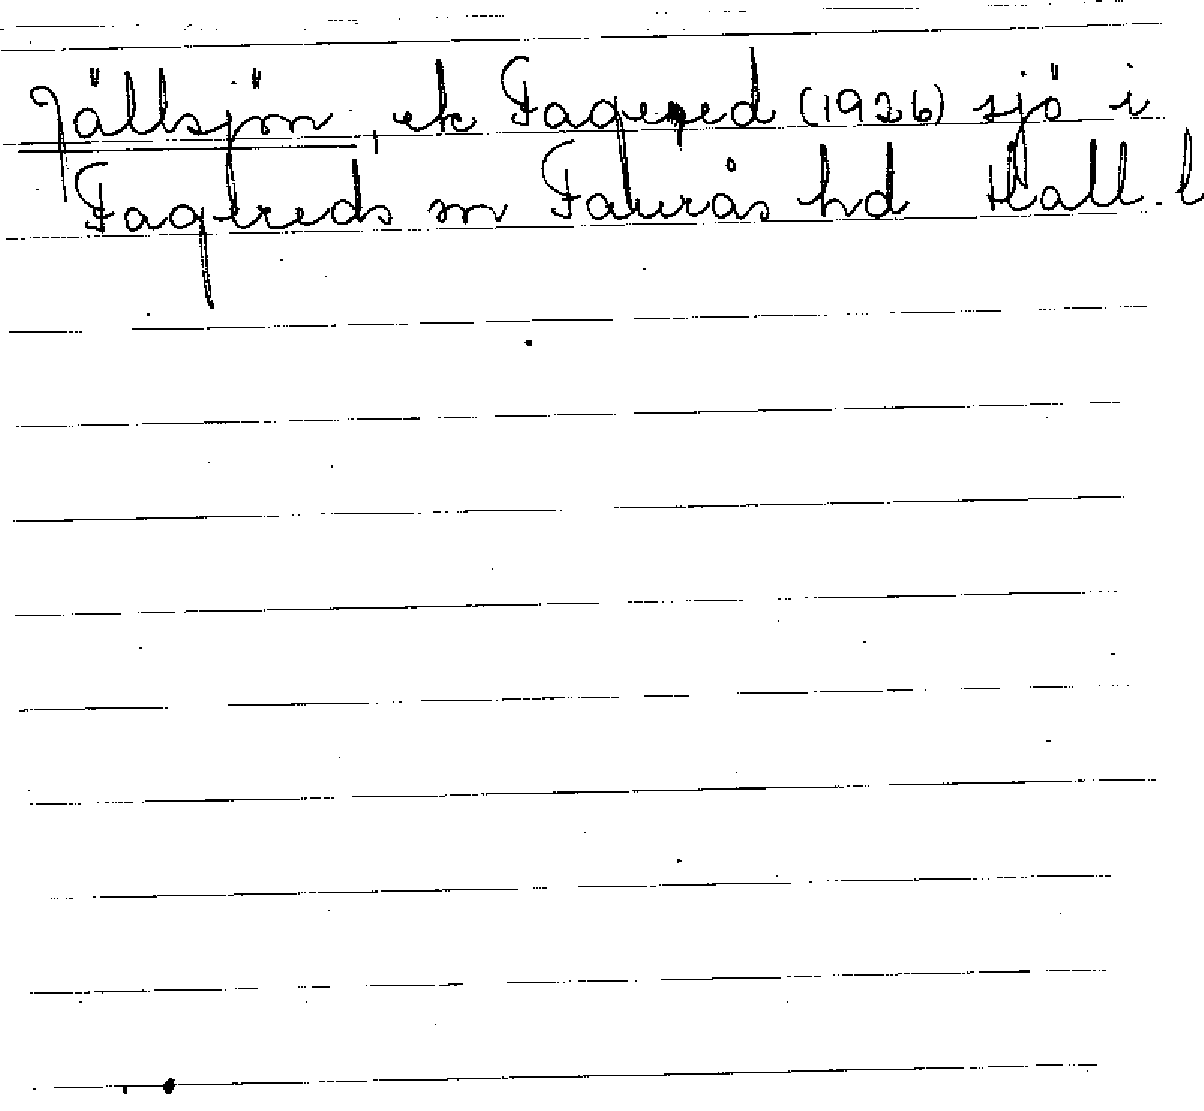 Jällsjön, ek Fagered (1926) sjö i
Fagereds sn Faurås hd Hall. l